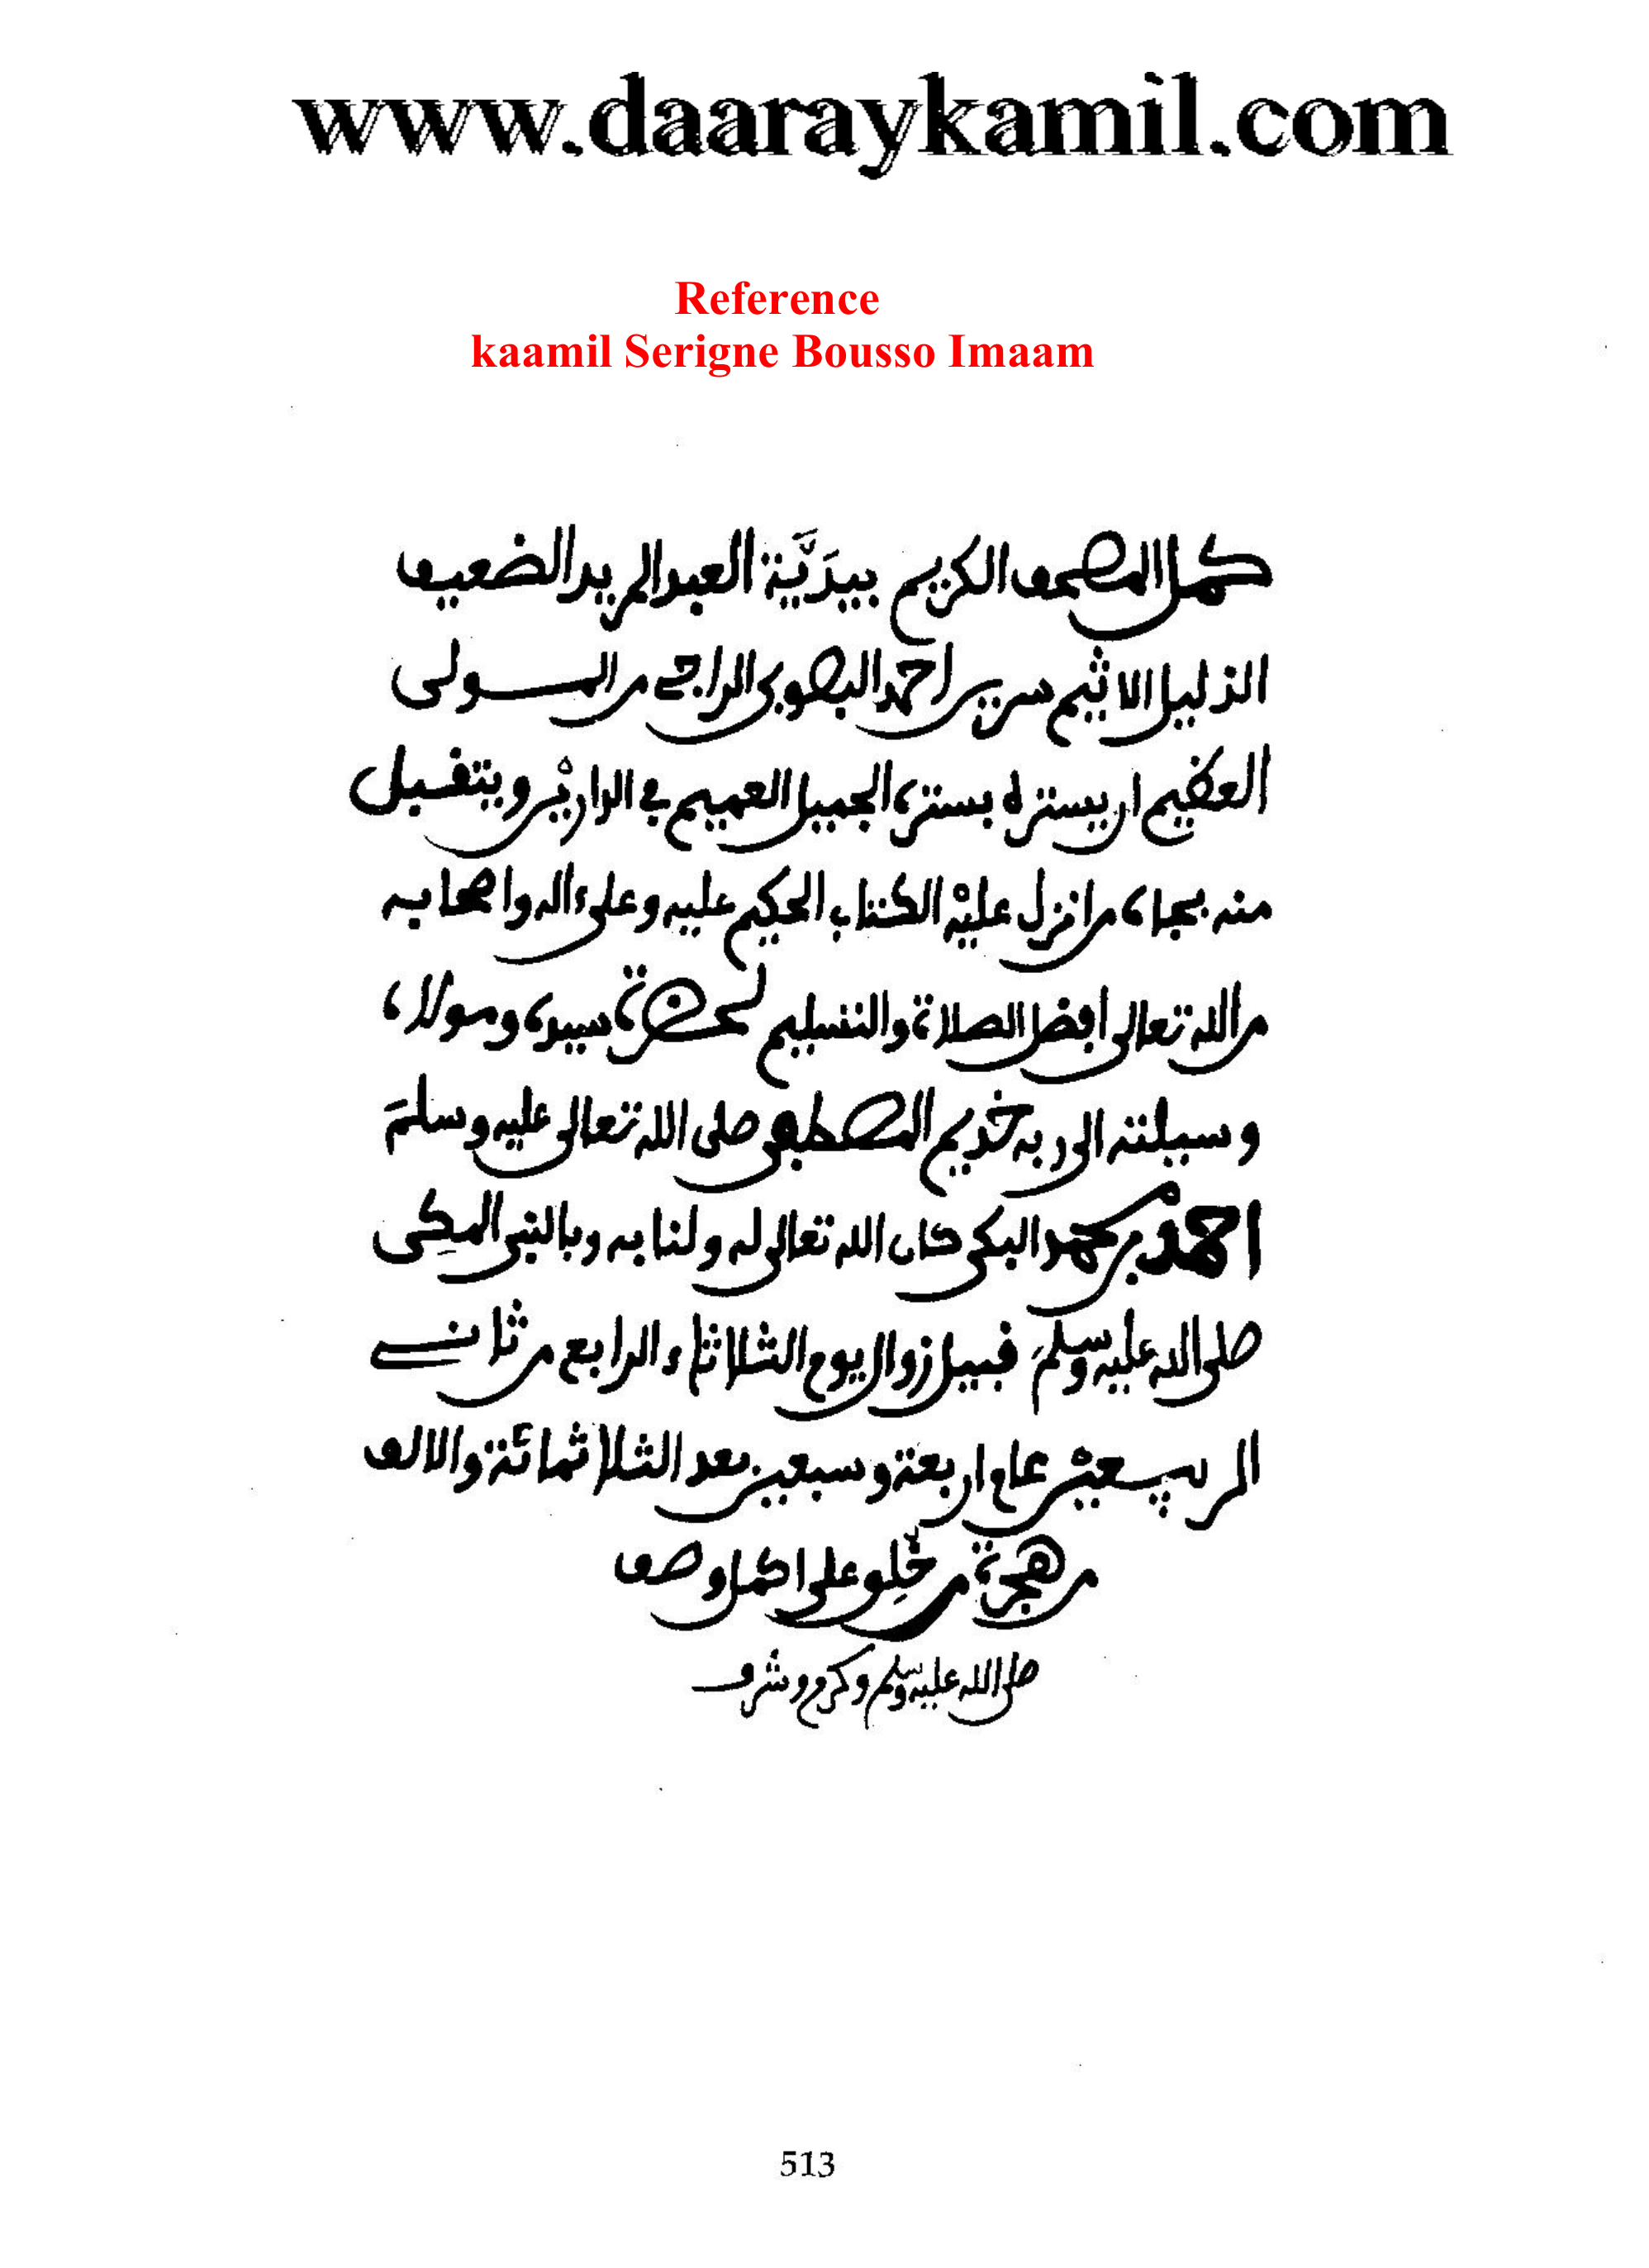 www.daaraykamil.com
Reference
kaamil Serigne Bousso Imaam
كمل المصحف الكريم بيديَّة العبد المريد الضعيف
الذليل الاثيم سرير احمد البصوبي الراجي من المولى
العظيم ان يستره بستره الجميل العميم في الدارين ويتقبل
منه بجاه من انزل عليه الكتاب الحكيم عليه وعلى ءاله واصحابه
من الله تعالى افضل الصلاة والتسليم لحضرة سيده ومولاه
وسيلته الى ربه خديم المصطفى صلى الله تعالى عليه وسلم
احمد بن محمد البكي كان الله تعالى له ولنا به وبالنبي المكي
صلى الله عليه وسلم قبيل زوال يوم الثلاثاء الرابع من ثاني
الربيعين عام اربعة وسبعين بعد الثلاثمائة والالف
من هجرة من خلق على اكمل وصف
صلى الله عليه وسلم وكرم وشرف
513